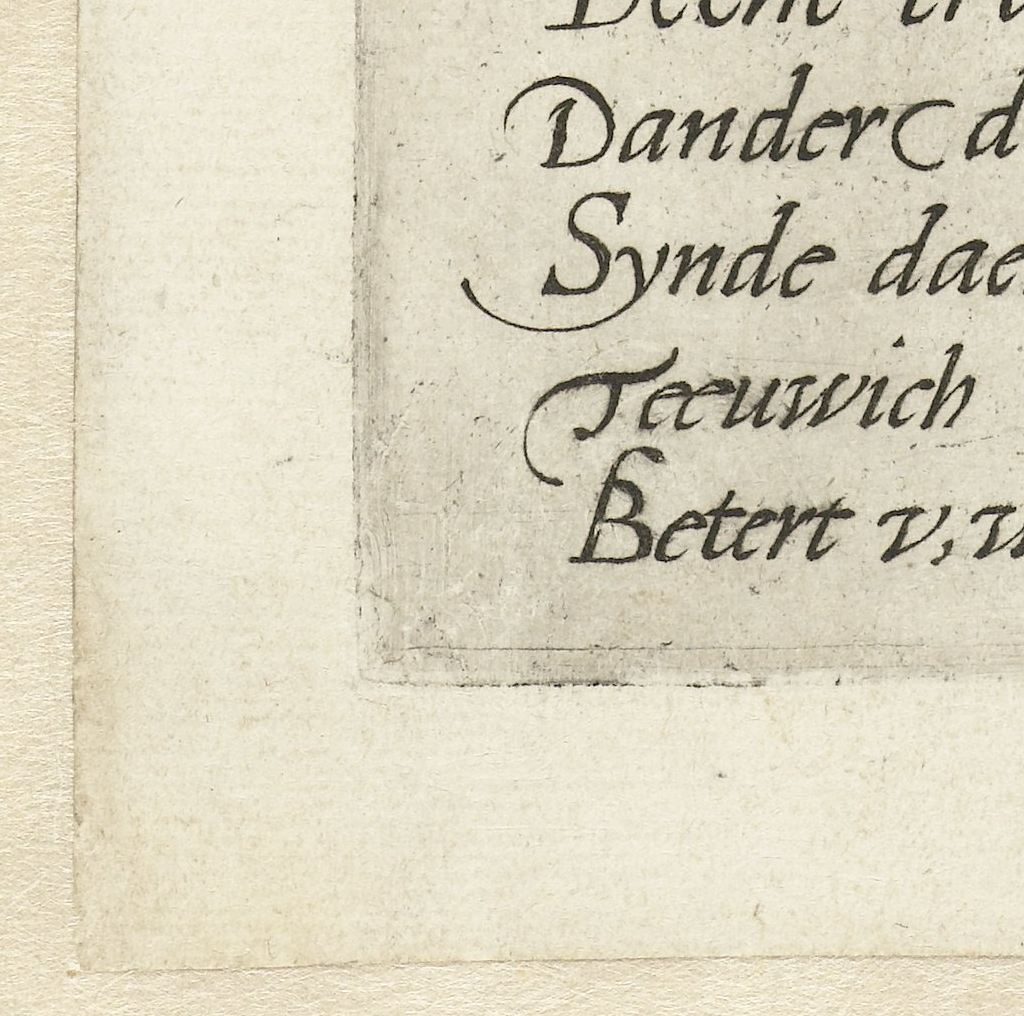 Dander d
Synde dae
Teeuwich
Betert v, v